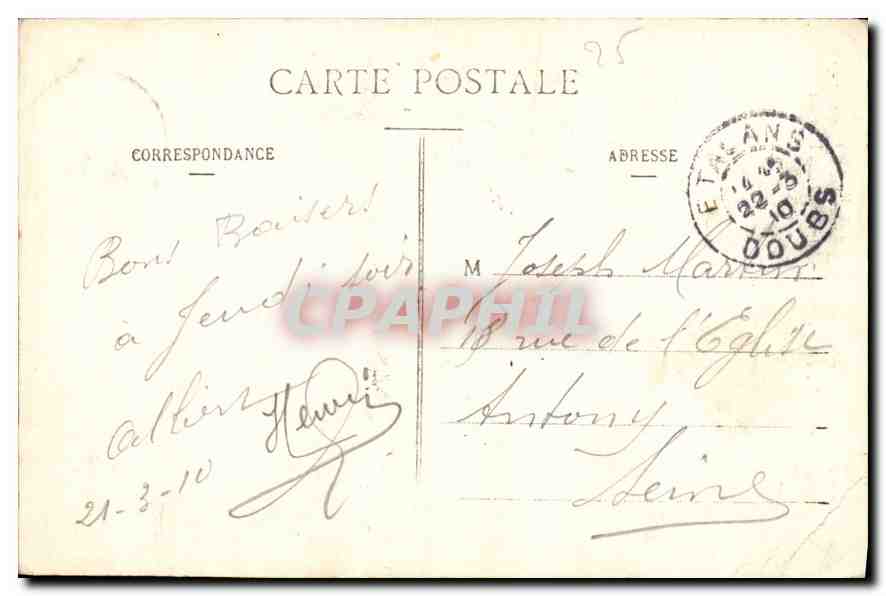 25
CARTE POSTALE
CORRESPONDANCE
Bons Baisers
à Jeudi soir
Albert Henri
21-3-10
ADRESSE
ETALANS
22-3
10
DOUBS
M Joseph Martin
18 rue de l'Eglise
Antony
Seine
CPAPHIL